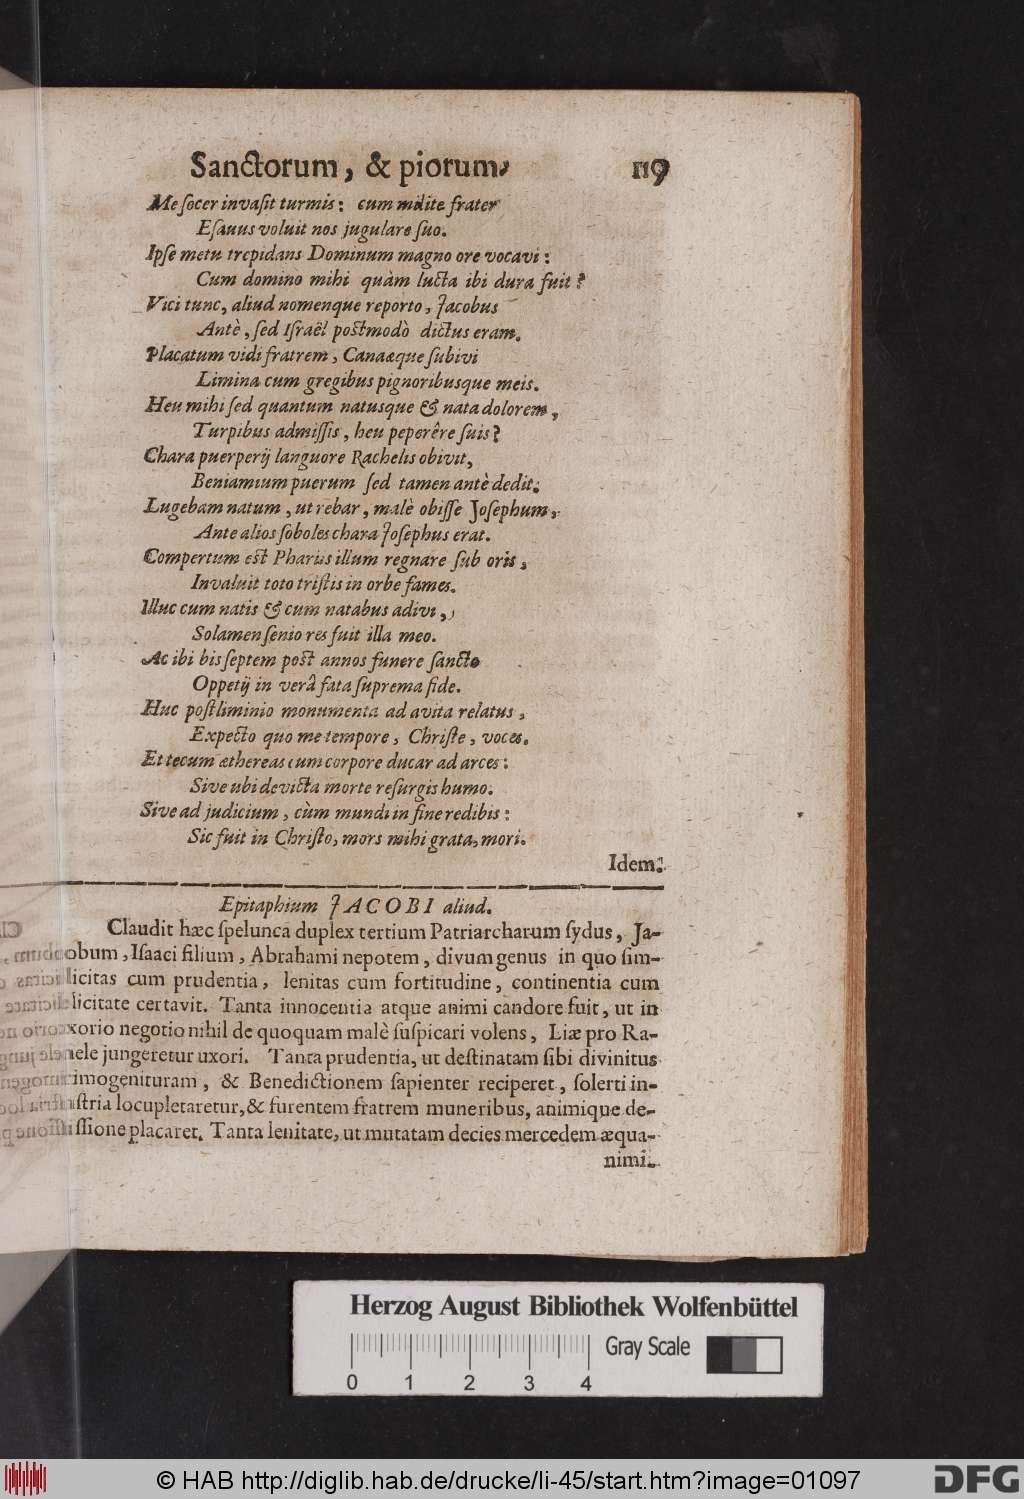 Sanctorum, & piorum, 119
Me ſocer invaſit turmis: cum milite frater
Eſauus voluit nos jugulare ſuo.
Ipſe metu trepidans Dominum magno ore vocavi:
Cum domino mihi quàm lucta ibi dura fuit?
Vici tunc, aliud nomenque reporto, Jacobus
Antè, ſed Iſraël poſtmodò dictus eram.
Placatum vidi fratrem, Canaæque ſubivi
Limina cum gregibus pignoribusque meis.
Heu mihi ſed quantum natusque & nata dolorem,
Turpibus admiſſis, heu peperêre ſuis?
Chara puerperij languore Rachelis obivit,
Beniamium puerum ſed tamen antè dedit.
Lugebam natum, ut rebar, malè obiſſe Joſephum,
Ante alios ſoboles chara Joſephus erat.
Compertum eſt Pharus illum regnare ſub oris,
Invaluit toto triſtis in orbe fames.
Illuc cum natis & cum natabus adivi,
Solamen ſenio res fuit illa meo.
Ac ibi bis ſeptem poſt annos funere ſancto
Oppetij in verâ fata ſuprema fide.
Huc poſtliminio monumenta ad avita relatus,
Expecto quo me tempore, Chriſte, voces.
Et tecum æthereas cum corpore ducar ad arces:
Sive ubi devicta morte reſurgis humo.
Sive ad judicium, cùm mundi in fine redibis:
Sic fuit in Chriſto, mors mihi grata, mori.
Idem.
Epitaphium JACOBI aliud.
Claudit hæc ſpelunca duplex tertium Patriarcharum ſydus, Ja-
obum, Iſaaci filium, Abrahami nepotem, divum genus in quo ſim-
licitas cum prudentia, lenitas cum fortitudine, continentia cum
licitate certavit. Tanta innocentia atque animi candore fuit, ut in
xorio negotio nihil de quoquam malè ſuſpicari volens, Liæ pro Ra-
ele jungeretur uxori. Tanta prudentia, ut deſtinatam ſibi divinitus
imogenituram, & Benedictionem ſapienter reciperet, ſolerti in-
ſtria locupletaretur, & furentem fratrem muneribus, animique de-
ſſione placaret. Tanta lenitate, ut mutatam decies mercedem æqua-
nimi.
Herzog August Bibliothek Wolfenbüttel
Gray Scale
0 1 2 3 4
© HAB http://diglib.hab.de/drucke/li-45/start.htm?image=01097
DFG